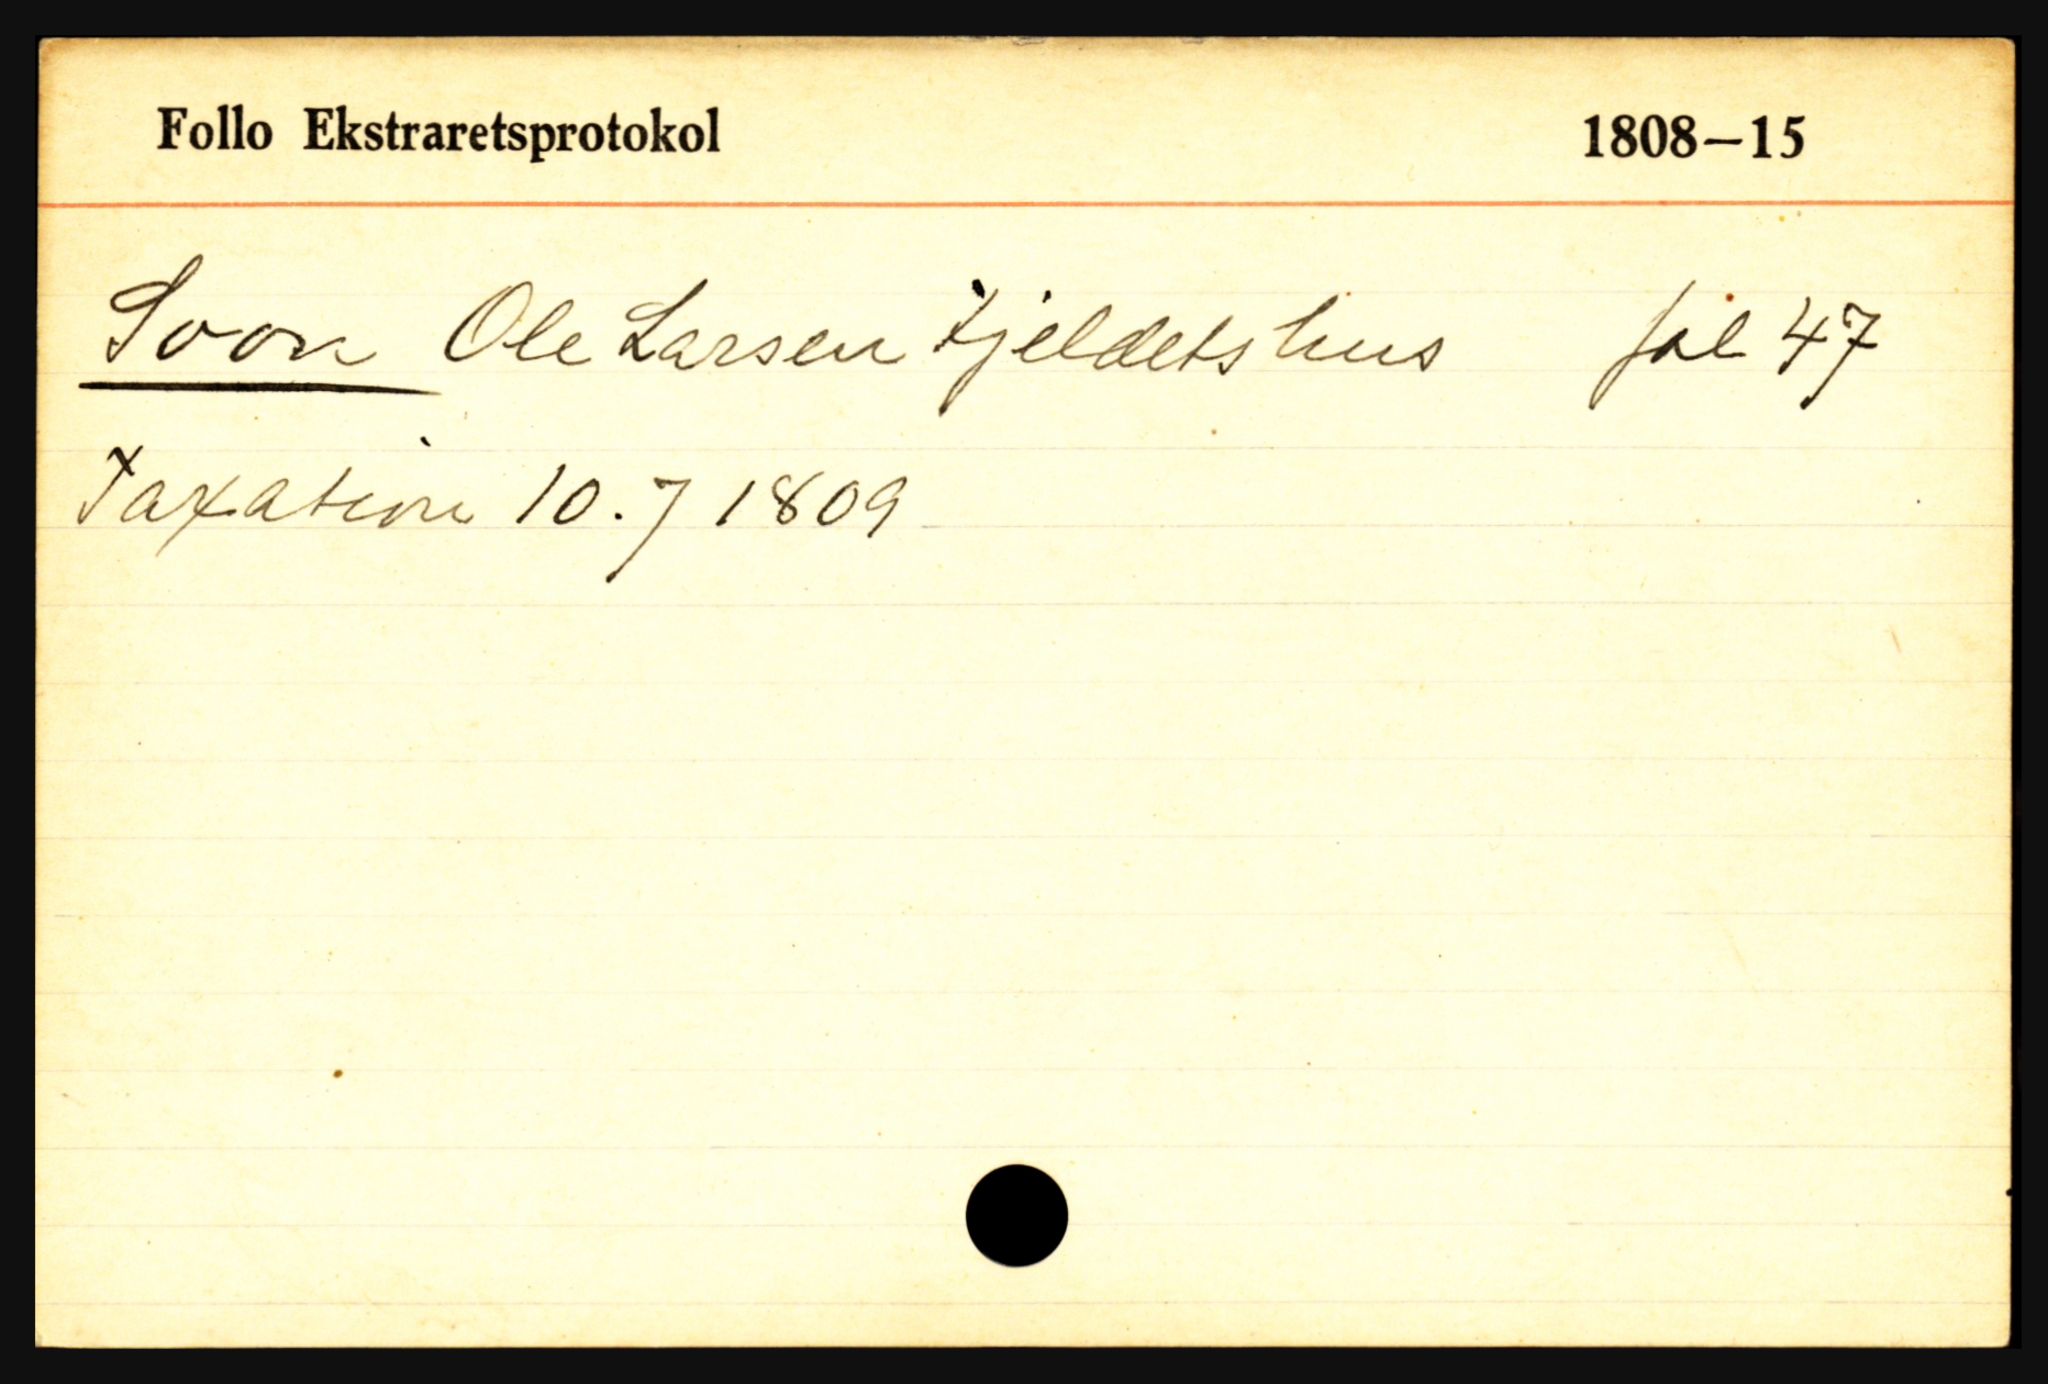 Follo Ekstraretsprotokol 1808–15
Soon Ole Larsen Fjeldets hus fol 47
Taxation 10.7 1809